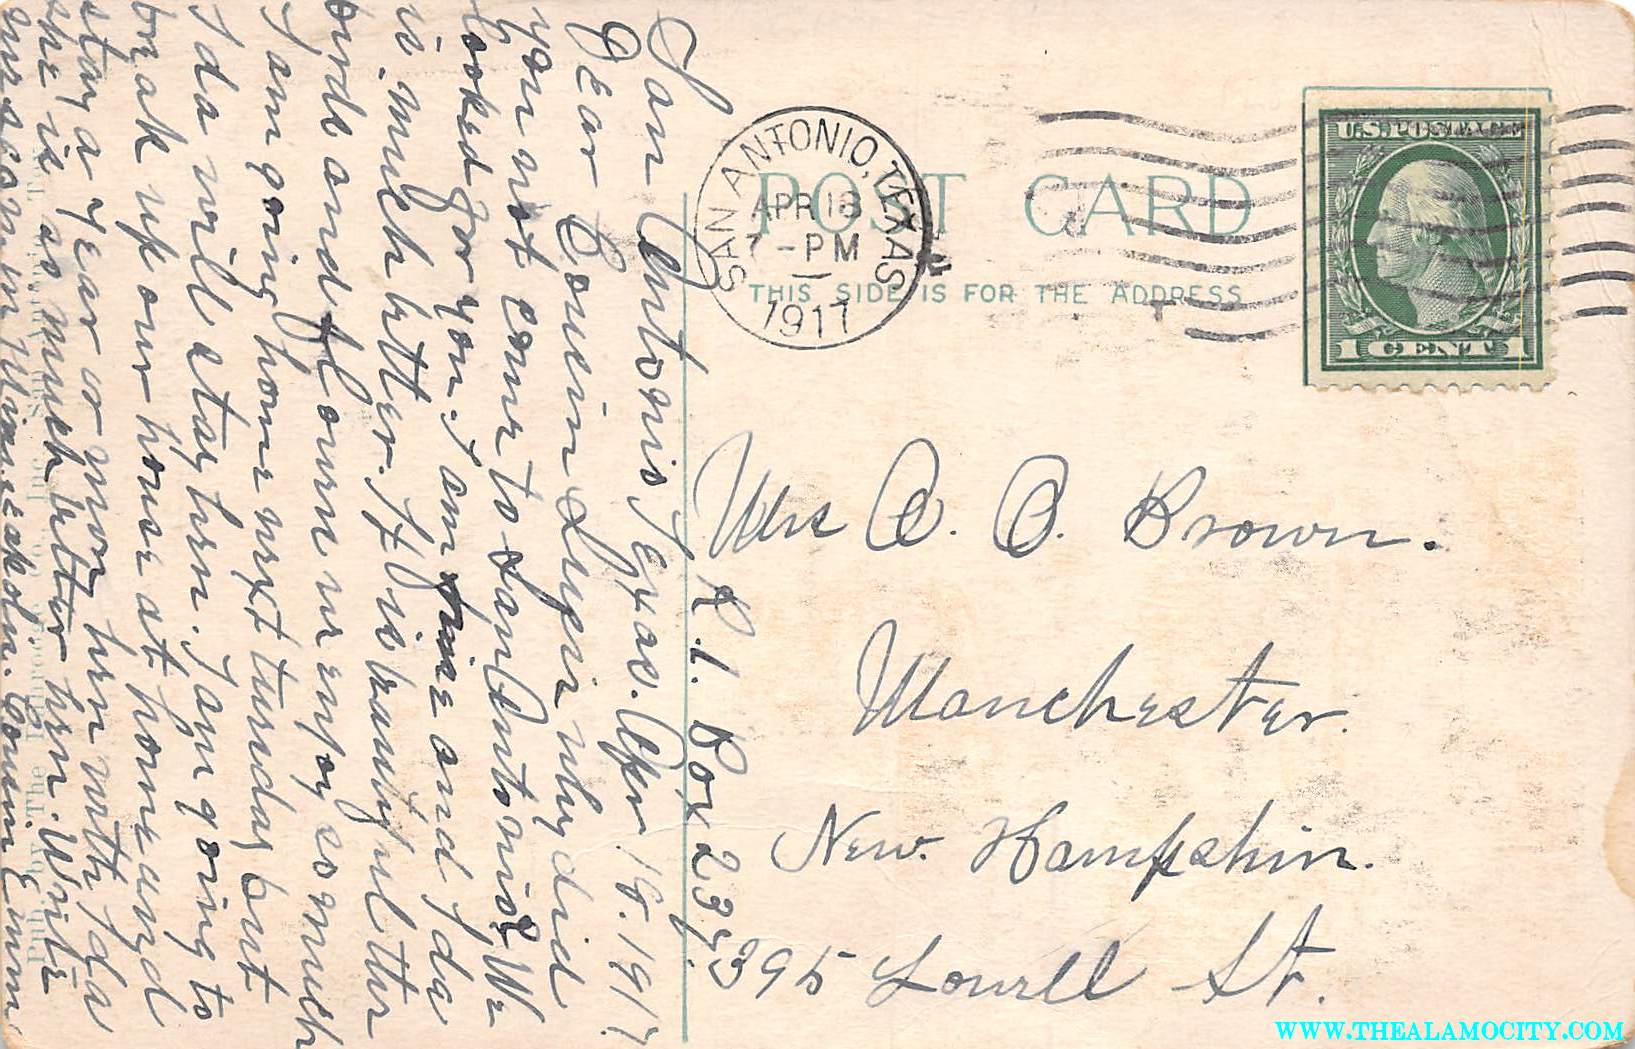 San Antonio Texas. Apr 18. 1917.
Dear Cousin Luceir why did
you not come to San Antonio? We
looked for you. I am fine and Ida
is much better. It is beautiful the
birds and flowers we enjoy so much
I am going home next tuesday but
Ida will stay here. I am going to
break up our house at home and
stay a year or more here with Ida
she is so much better here. Write
me soon in Minneapolis. Cousin Emma
Pub. by The Co., Inc., San Antonio, Tex.
SAN ANTONIO, TEXAS
APR 18
7 - PM
1917
POST CARD
THIS SIDE IS FOR THE ADDRESS
U.S. POSTAGE
1 CENT 1
Mrs C. C. Brown.
R. 1. Box 237.
Manchester.
New. Hampshire.
395 Lowell St.
WWW.THEALAMOCITY.COM